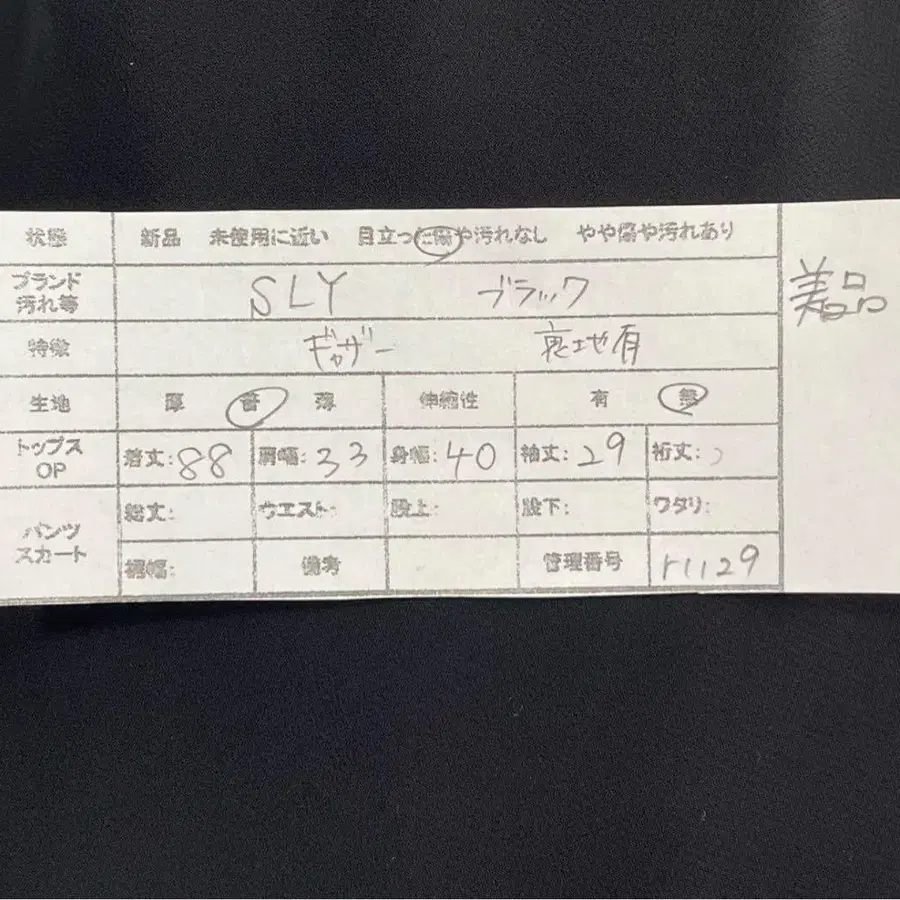 状態 新品 未使用に近い 目立った傷や汚れなし やや傷や汚れあり
美品
ブランド
汚れ等 SLY ブラック
特徴 ギャザー 裏地有
生地 厚 普 薄 伸縮性 有 無
トップス
OP 着丈:88 肩幅:33 身幅:40 袖丈:29 裄丈:
パンツ
スカート 総丈: ウエスト: 股上: 股下: ワタリ:
裾幅: 備考 管理番号 r1129